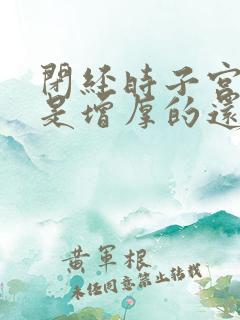 閉經時子宮
是增厚的還
黃軍根
未经同意禁止转载